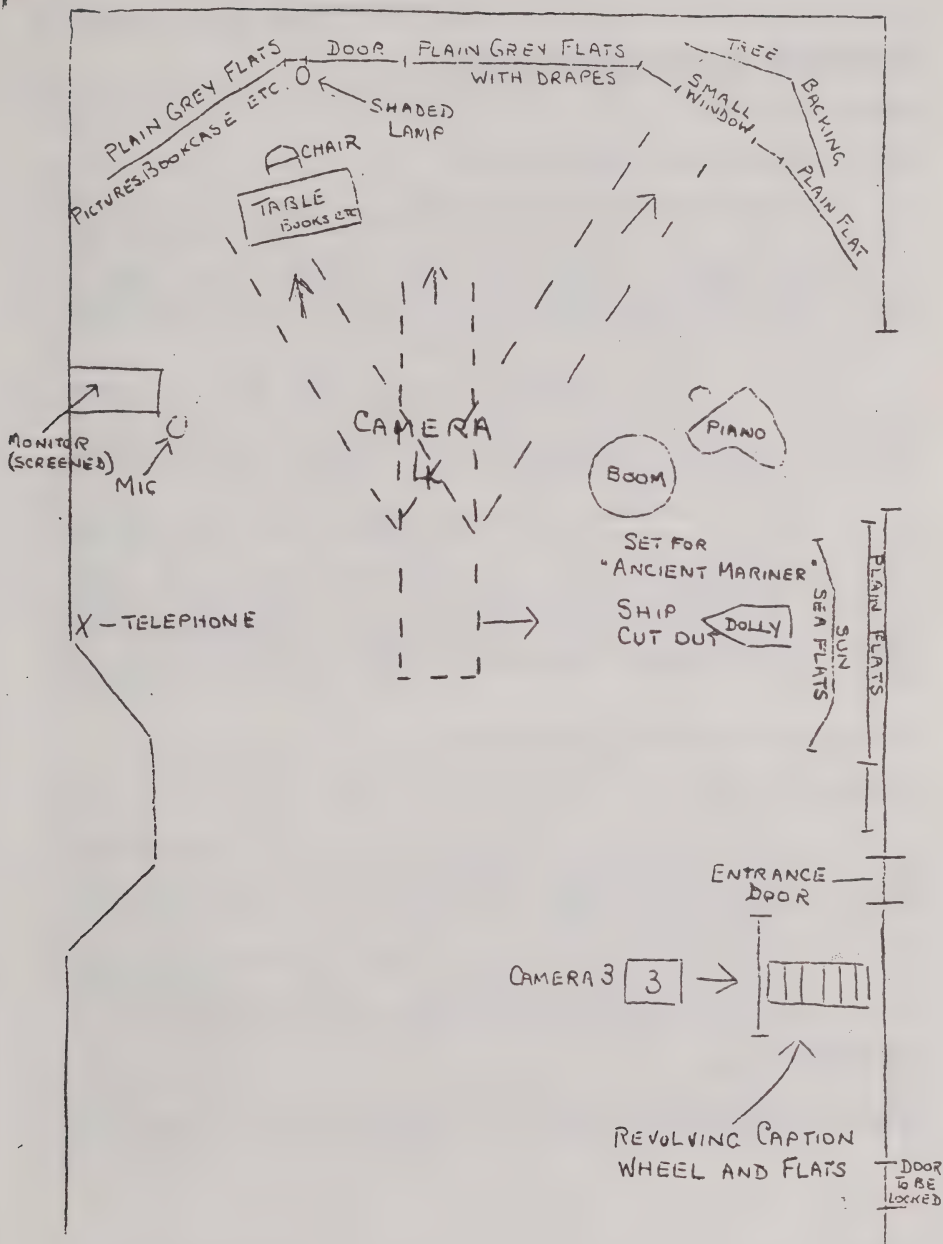 PLAIN GREY FLATS
PICTURES, BOOKCASE ETC.
DOOR
PLAIN GREY FLATS
WITH DRAPES
TREE
BACKING
SMALL
WINDOW
PLAIN FLAT
SHADED
LAMP
CHAIR
TABLE
BOOKS ETC
MONITOR
(SCREENED)
MIC
CAMERA
PIANO
BOOM
SET FOR
"ANCIENT MARINER"
SHIP
CUT OUT
DOLLY
SEA FLATS
SUN
PLAIN FLATS
X - TELEPHONE
ENTRANCE
DOOR
CAMERA 3
3
REVOLVING CAPTION
WHEEL AND FLATS
DOOR
TO BE
LOCKED